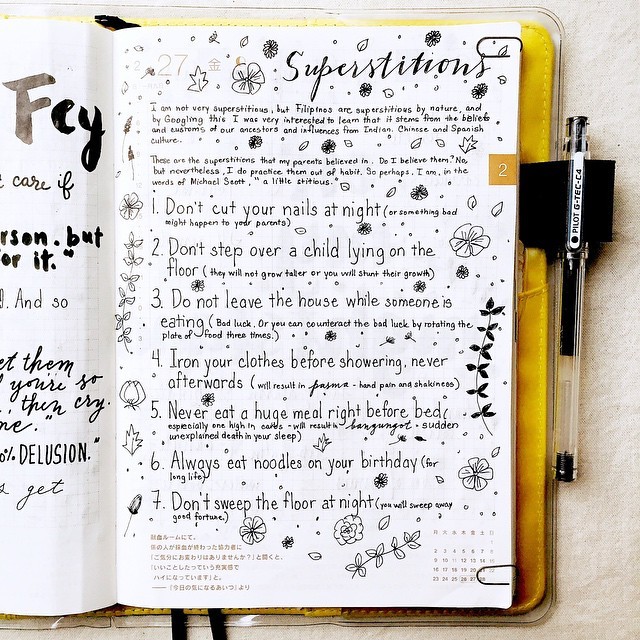 Fey
t care if
rson. but
or it."
d. And so
et them
if you're so
, then cry.
ne."
0% DELUSION."
s get
27 金
Superstitions
2
I am not very superstitious, but Filipinos are superstitious by nature, and
by Googling this I was very interested to learn that it stems from the beliefs
and customs of our ancestors and influences from Indian, Chinese and Spanish
culture.
These are the superstitions that my parents believed in. Do I believe them? No,
but nevertheless, I do practice them out of habit. So perhaps, I am, in the
words of Michael Scott, "a little stitious."
1. Don't cut your nails at night (or something bad
might happen to your parents)
2. Don't step over a child lying on the
floor (they will not grow taller or you will stunt their growth)
3. Do not leave the house while someone is
eating (Bad luck. Or you can counteract the bad luck by rotating the
plate of food three times.)
4. Iron your clothes before showering, never
afterwards (will result in pasma - hand pain and shakiness)
5. Never eat a huge meal right before bed(
especially one high in carbs - will result in bangungot - sudden
unexplained death in your sleep)
6. Always eat noodles on your birthday (for
long life)
7. Don't sweep the floor at night (you will sweep away
good fortune.)
献血ルームにて。
係の人が採血が終わった協力者に
「ご気分にお変わりはありませんか?」と聞くと、
「いいことしたっていう充実感で
ハイになっています」と。
——「今日の気になるあいつ」より
日 月 火 水 木 金 土
1
2 3 4 5 6 7 8
9 10 11 12 13 14 15
16 17 18 19 20 21 22
23 24 25 26 27 28
PILOT G-TEC-C4